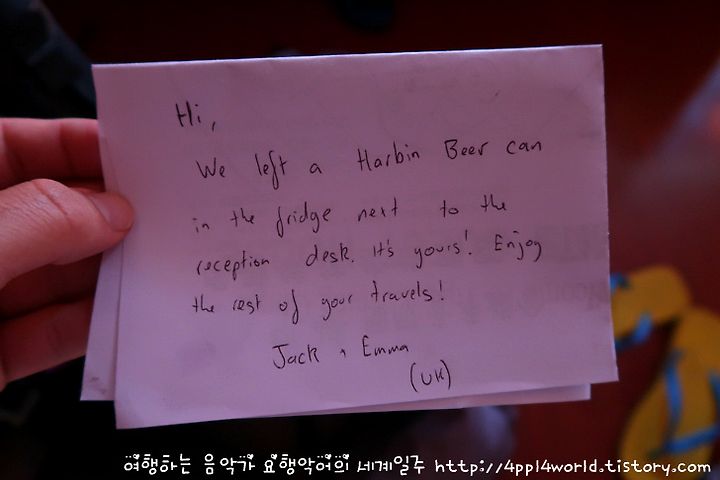 Hi,
We left a Harbin Beer can
in the fridge next to the
reception desk. It's yours! Enjoy
the rest of your travels!
Jack + Emma
(UK)
여행하는 음악가 요행악어의 세계일주 http://4ppl4world.tistory.com